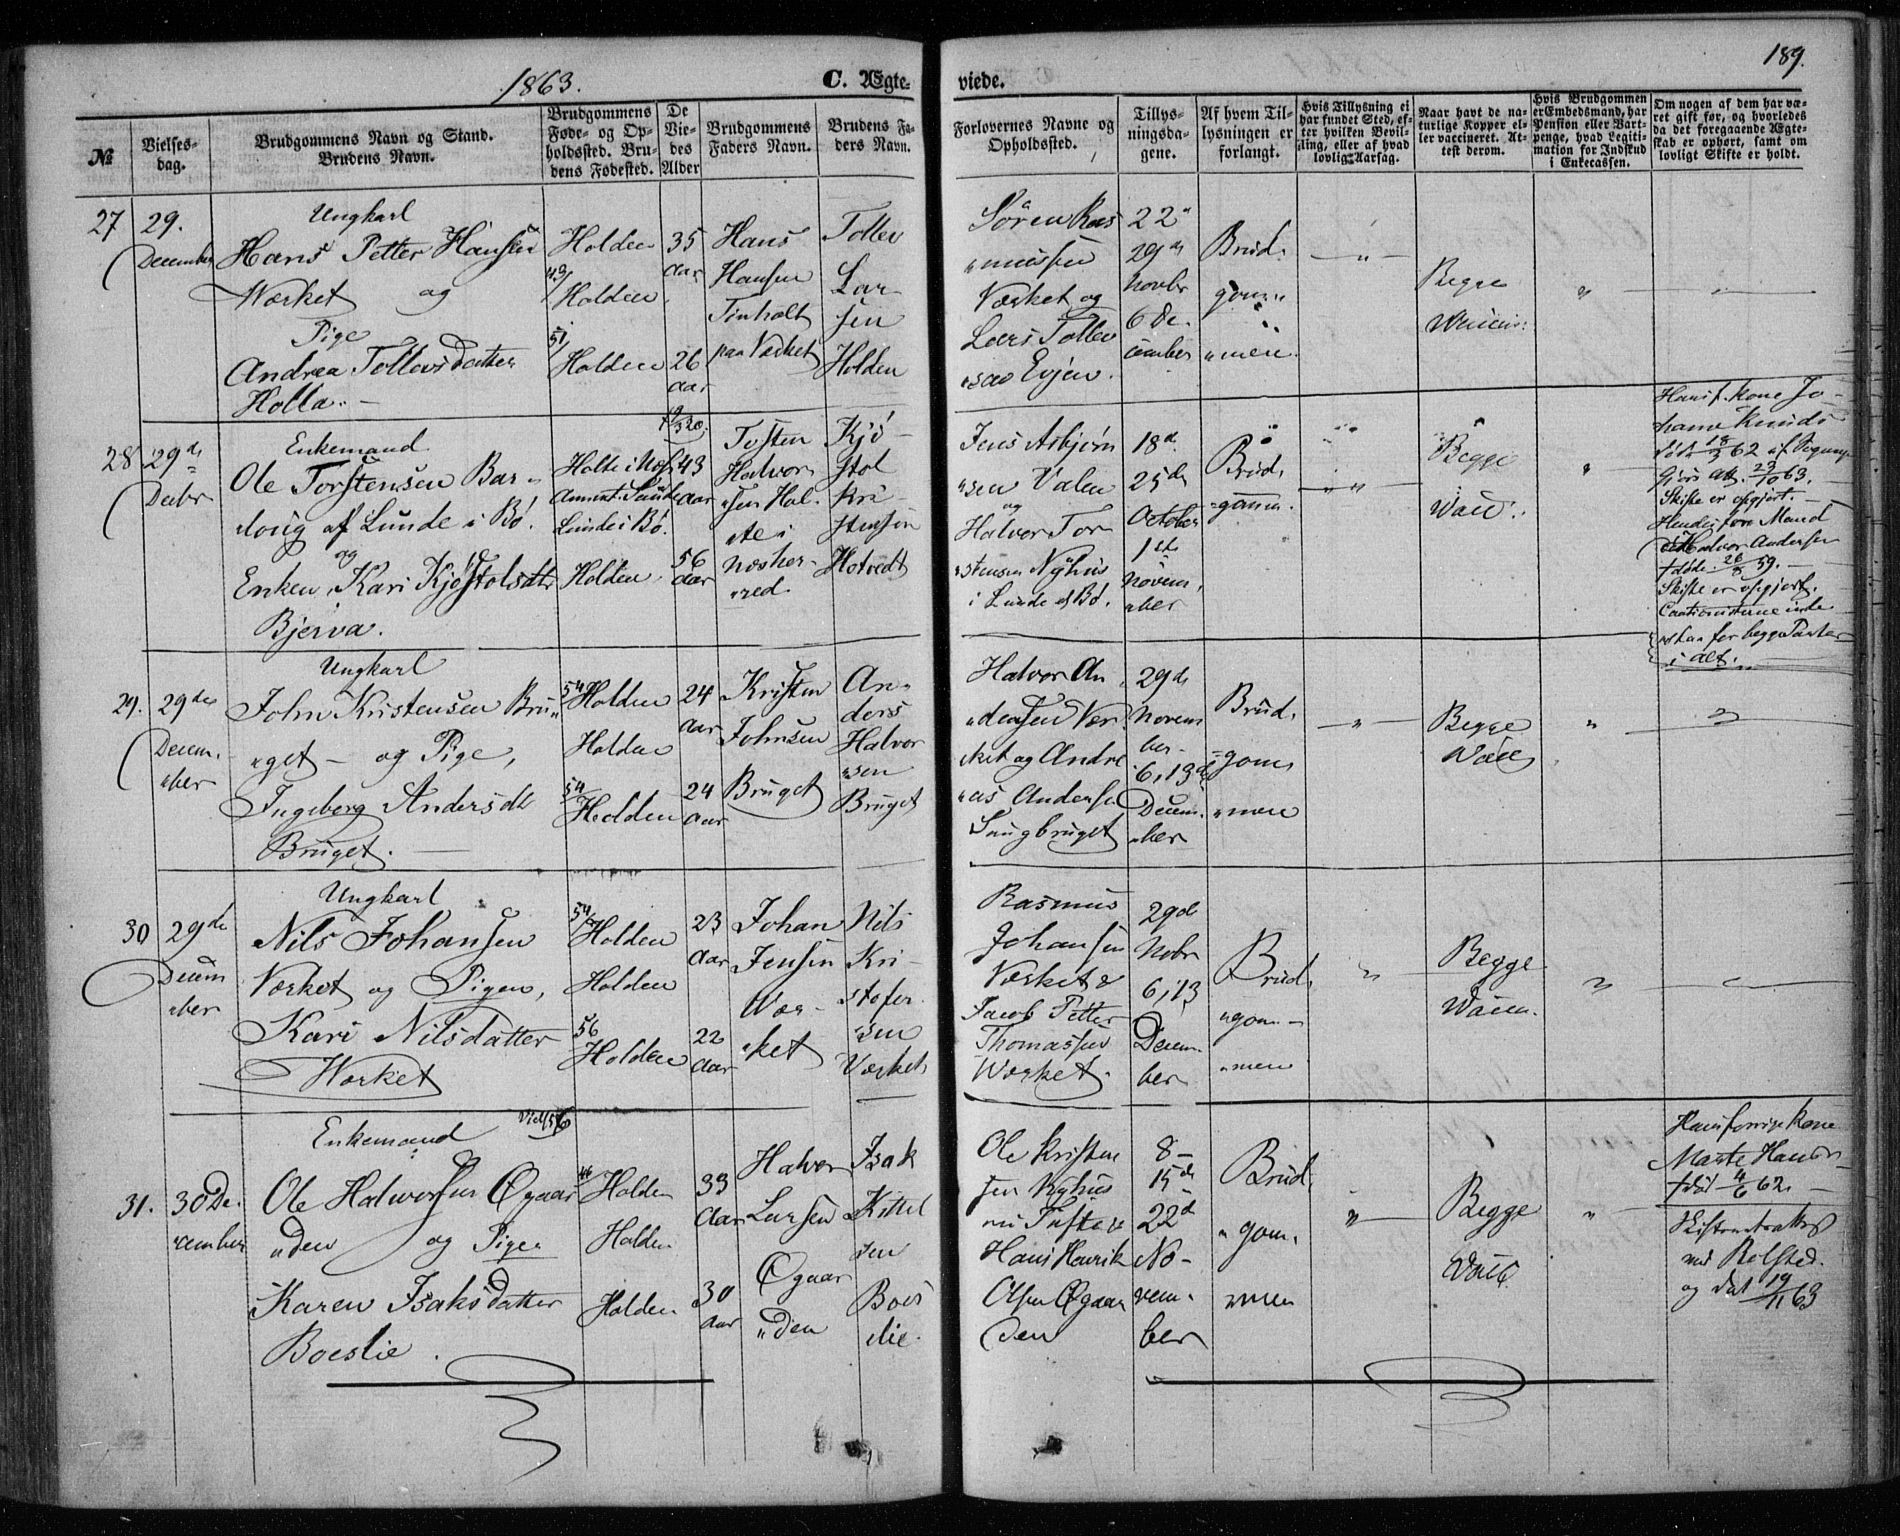 1863.
C. Ægte-
viede.
189.
№
Vielses-
dag.
Brudgommens Navn og Stand.
Brudens Navn.
Brudgommens
Føde- og Op-
holdssted. Bru-
dens Fødested.
De
Vie-
des
Alder
Brudgommens
Faders Navn.
Brudens Fa-
ders Navn.
Forlovernes Navne og
Opholdssted.
Tillys-
ningsda-
gene.
Af hvem Til-
lysningen er
forlangt.
Hvis Tillysning ei
har fundet Sted, ef-
ter hvilken Bevil-
ling, eller af hvad
lovlig Aarsag.
Naar havt de na-
turlige Kopper el-
ler vaccineret. At-
test derom.
Hvis Brudgommen
er Embedsmand, har
Pension eller Vart-
penge, hvad Legiti-
mation for Indskud
i Enkecassen.
Om nogen af dem har væ-
ret gift før, og hvorledes
da det foregaaende Ægte-
skab er ophørt, samt om
lovligt Skifte er holdt.
27
29.
December
Ungkarl
Hans Petter Hansen
Værket og
Pige
Andrea Tollevsdatter
Holla.
Holden
Holden
51/
Holden
35
aar
26
aar
Hans
Hansen
Tinholt
paa Værket
Tollev
Lar-
sen
Holden
Søren Ras
"mussen
Værket og
Lars Tollev
"sen Evjen.
22
29de
Novbr
6 De-
cember
Brud-
gom-
"men
Begge
28
29de
Decbr
Enkemand
Ole Torstensen Bar-
"loug af Lunde i Bø.
og
Enken, Kari Kjøstolsdtr
Bjerva.
Holte i Nes
Lunde i Bø.
Holden
43
aar
56
aar
Tosten
Halvor
"sen Hol-
te i
Nesher-
"red.
Kjø-
stol
Kri-
stensen
Hotvedt
Jens Asbjørn
"sen Valen
og
Halvor Tor
"stensen Nyhus
i Lunde i Bø.
18de
25de
October
1ste
Novem
"ber
Brud-
"gomm.
Begge
Vacc.
Hans f. Kone Jo-
hanne Knuds
døde 18/3 62
Skifte er opgjort.
Hendes forr. Mand
Halvor Andersen
døde 26/8 59.
Skifte er opgjort.
Cautionisterne inde
staa for begge Parter
i alt.
29.
29de
Decem-
"ber
Ungkarl
John Kristensen Bru-
"get - og Pige,
Ingeberg Andersdtr
Bruget.
54/
Holden
Holden
54/
Holden
24
aar
24
aar
Kristen
Johnsen
Bruget
An-
ders
Halvor
"sen
Bruget
Halvor An
"dersen Vær
"ket og Andre
"as Andersen
Saugbruget
29de
Novem
ber-
6, 13de
Decem-
"ber
Brud-
"gom-
"men
Begge
Vacc
30
29de
Decem
"ber
Ungkarl
Nils Johansen
Værket og Pigen,
Kari Nilsdatter
Værket
54/
Holden
Holden
56
Holden
23
aar
22
aar
Johan
Jensen
Vær-
"ket
Nils
Kri-
stofer
"sen
Værket
Rasmus
Johansen
Værket &
Jacob Petter
Thomassen
Værket.
29de
Nobr
6, 13
Decem-
ber
Brud-
"gom-
"men
Begge
Vaccn.
31.
30 De-
"cember
Enkemand
Ole Halvorsen Øgaar
"den og Pigen
Karen Isaksdatter
Boeslie.
Holden
Holden
Holden
33
aar
30
aar
Halvor
Larsen
Øgaar
"den
Isak
Kittel
"sen
Boes
"lie.
Ole Kristen
sen Nyhus
Hans Henrik
Olsen Øgaar
den
8-
15de
22de
No-
vem-
ber
Brud-
"gom-
"men
Begge
Vacc
Hans forrige Kone
Marte Hans
død 4/6 62.
og dat 19/11 63